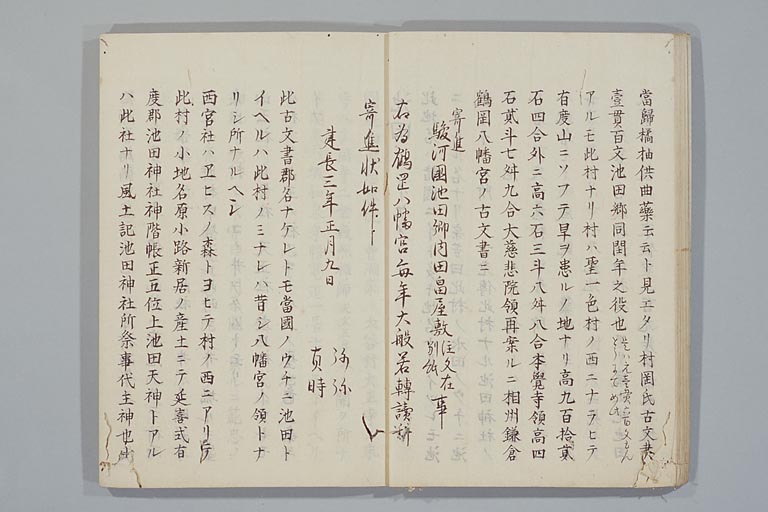 當歸橘柚供曲藥玉云ト見エタリ村岡氏古文書
壹貫百文池田郷同閏年之役也
アルモ此村ナリ村ハ聖一色村ノ西ニナラヒテ
有度山ニソフテ旱ヲ患ルノ地ナリ高九百拾貳
石四合外ニ高六石三斗八舛八合李覺寺領高四
石貳斗七舛九合大慈悲院領再案ルニ相州鎌倉
鶴岡八幡宮ノ古文書ニ
寄進
駿河國池田郷内田畠屋敷注文在別紙事
右為鶴岡八幡宮毎年大般若轉讀
寄進狀如件
建長三年正月九日
貞時
此古文書郡名ナケレトモ當國ノウチニ池田ト
イヘルハ此村ノミナレハ昔シ八幡宮ノ領トナ
リシ所ナルヘシ
西宮社ハヱヒスノ森トヨヒテ村ノ西ニアリ
此村ノ小地名原小路新居ノ産土ニテ延喜式有
度郡池田神社神階帳正五位上池田天神トアル
ハ此社ナリ風土記池田神社所祭事代主神也